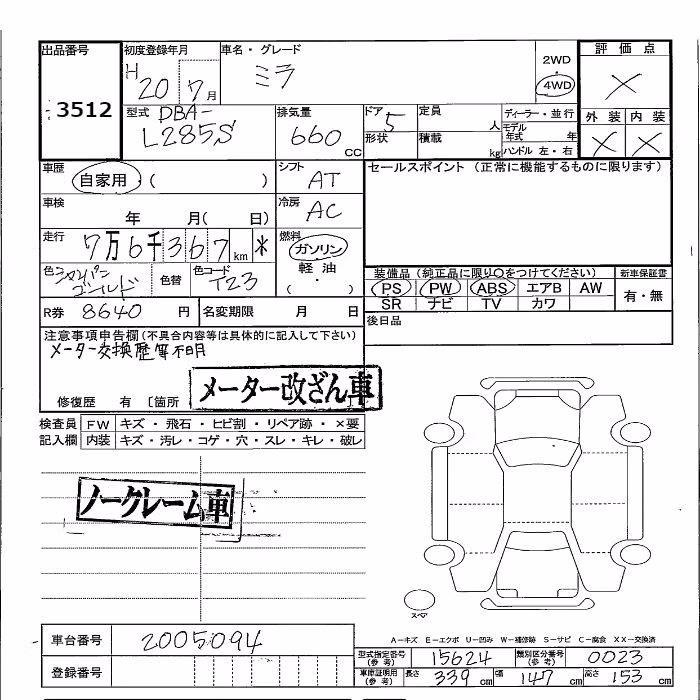 出品番号
3512
初度登録年月
H 20 7月
車名・グレード
ミラ
2WD
4WD
評価点
×
外装 内装
× ×
型式 DBA-
L285S
排気量
660 CC
ドア 5
形状
定員 人
積載 kg
ディーラー・並行
モデル年式 年
ハンドル 左・右
車歴
自家用・( )
シフト
AT
セールスポイント (正常に機能するものに限ります)
車検
年 月( 日)
冷房
AC
走行
7万6千367km *
燃料
ガソリン
軽油
( ・ )
色
シャンパンゴールド
色替
色コード
T23
装備品 (純正品に限り○をつけてください)
新車保証書
PS PW ABS エアB AW
SR ナビ TV カワ
有・無
R券 8640 円
名変期限 月 日
後日品
注意事項申告欄(不具合内容等は具体的に記入して下さい)
メーター交換歴等不明
メーター改ざん車
修復歴 有 〔箇所
検査員記入欄
FW キズ・飛石・ヒビ割・リペア跡・×要
内装 キズ・汚レ・コゲ・穴・スレ・キレ・破レ
ノークレーム車
スペア
A-キズ E-エクボ U-凹み W-補修跡 S-サビ C-腐食 XX-交換済
車台番号 2005094
登録番号
型式指定番号(参考) 15624
類別区分番号(参考) 0023
車庫証明用(参考) 長さ 339 cm 幅 147 cm 高さ 153 cm